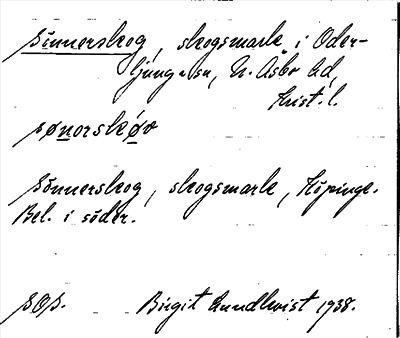 Sönnerskog, skogsmark i Oder-
ljunga sn, N. Åsbo hd,
Krist. l.
sønorskóv
Sönnerskog, skogsmark, Köpinge.
Bel. i söder.
SOS. Birgit Lundkvist 1938.